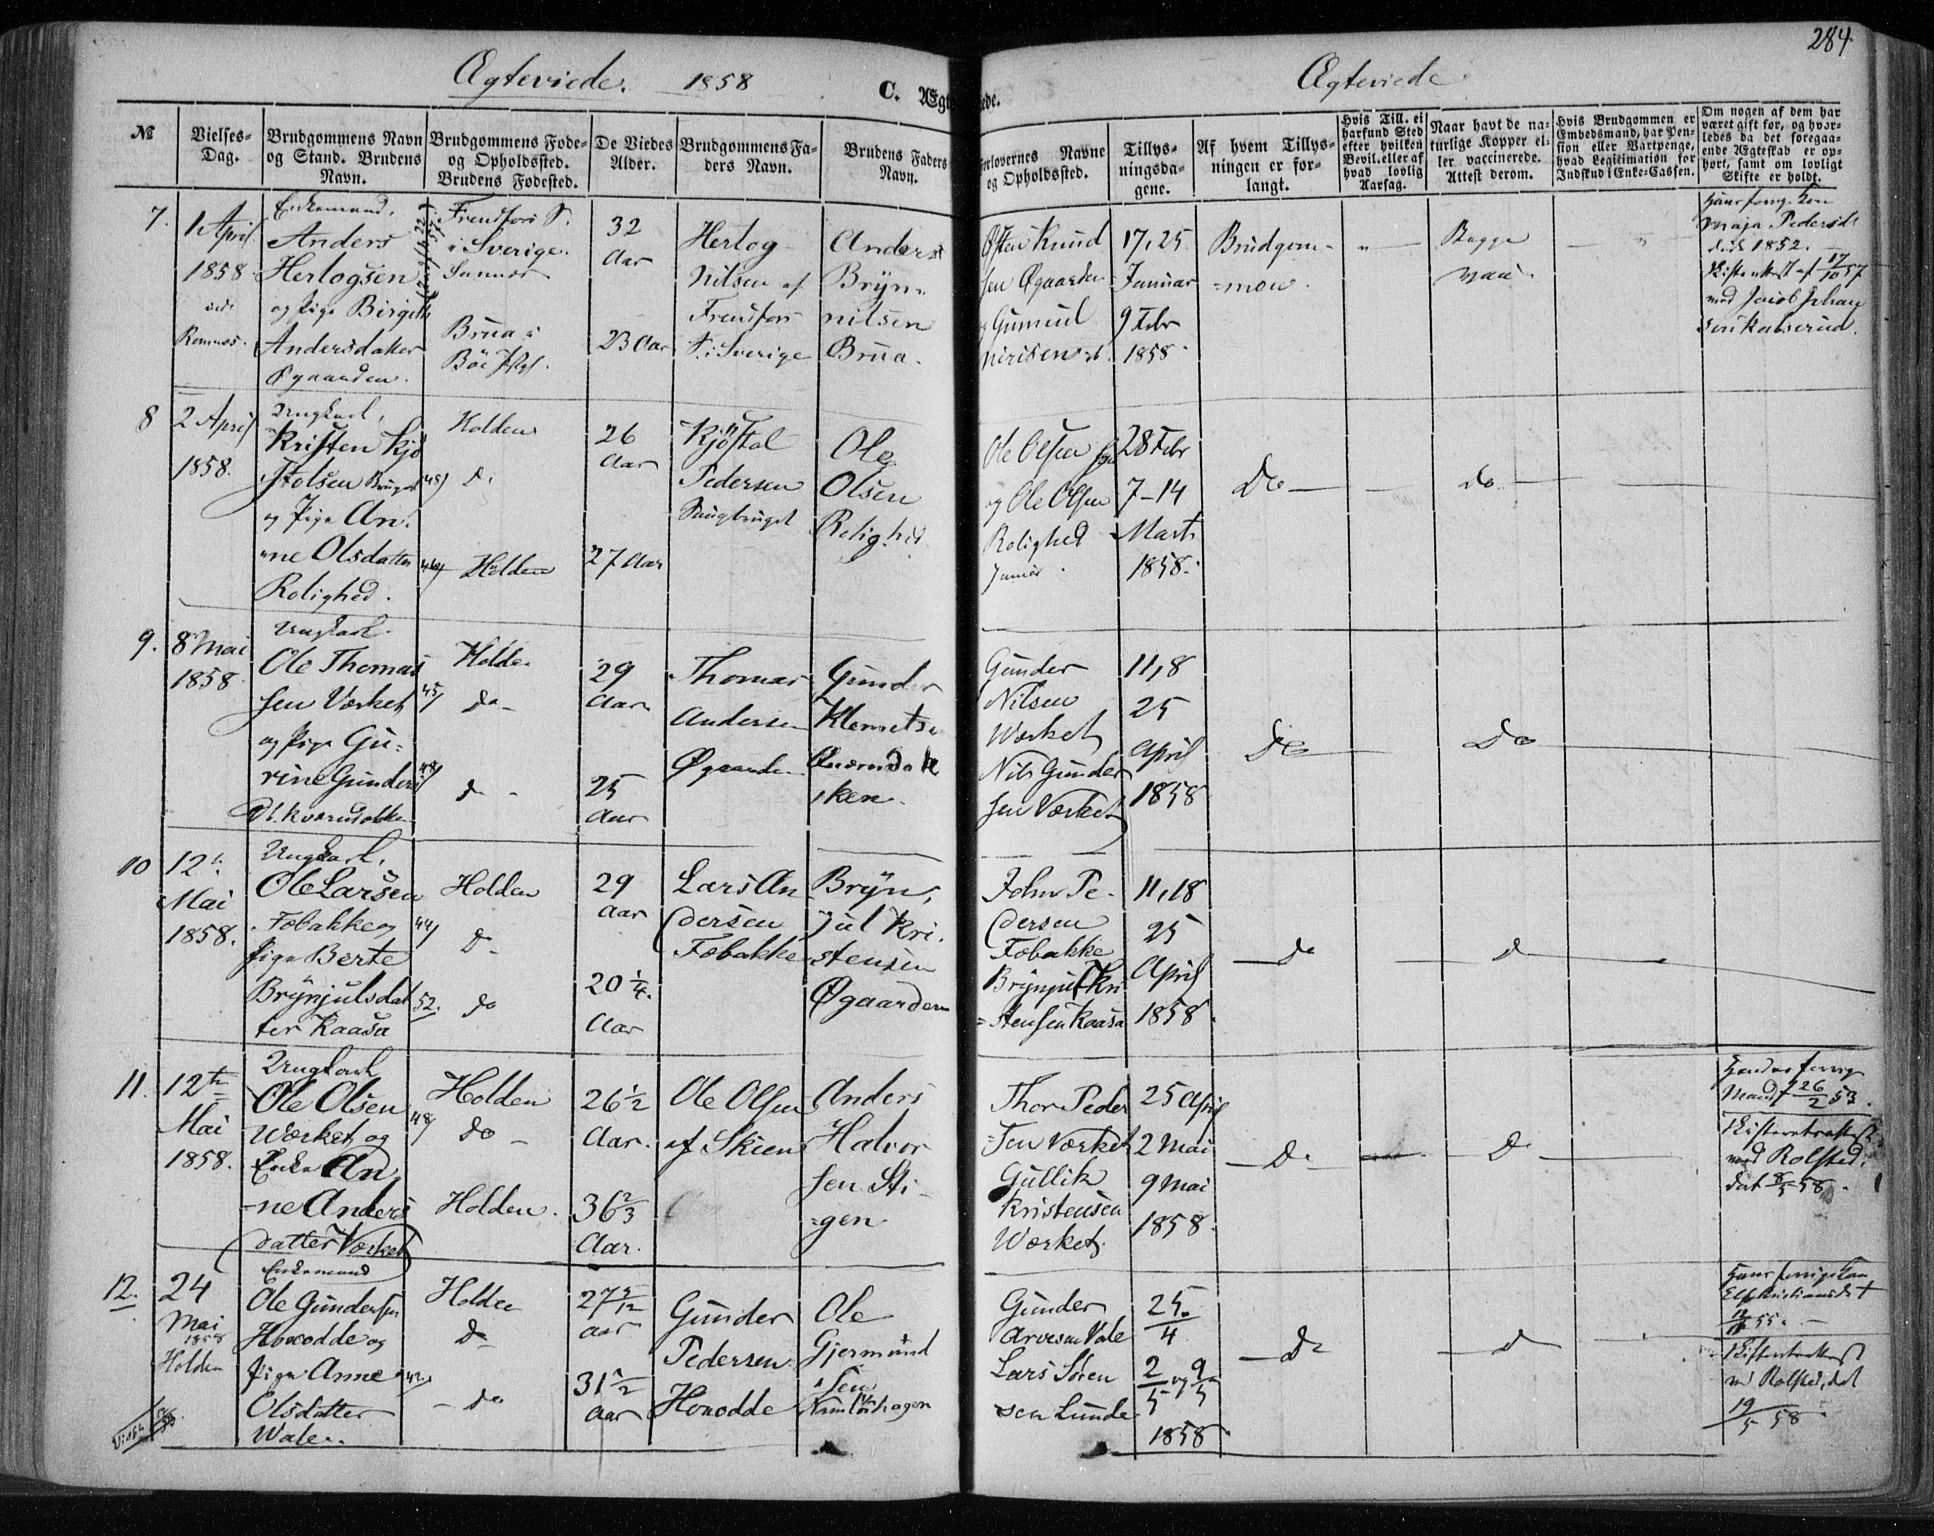 284
Ægteviede. 1858
C. Ægteviede.
Ægteviede
№
Vielses-Dag.
Brudgommens Navn og Stand. Brudens Navn.
Brudgommens Føde- og Opholdssted. Brudens Fødested.
De Viedes Alder.
Brudgommens Faders Navn.
Brudens Faders Navn.
Forlovernes Navne og Opholdssted.
Tillysningsdagene.
Af hvem Tillysningen er forlangt.
Hvis Till. ei harfund Sted efter hvilken Bevil. eller af hvad lovlig Aarsag.
Naar havt de naturlige Kopper eller vaccinerede. Attest derom.
Hvis Brudgommen er Embedsmand, har Pension eller Vartpenge, hvad Legitimation for Indskud i Enke-Cassen.
Om nogen af dem har været gift før, og hvorledes da det foregaaende Ægteskab er ophørt, samt om lovligt Skifte er holdt.
7.
1 April
1858
Romnes.
Enkemand.
Anders
Hertogsen
og Pige Birgitte
Andersdatter
Øgaarden.
i Sverige.
Brua i
Böe
32
Aar
23 Aar
Hertog
Nilsen af
i Sverige
Anders
Bryn-
nilsen
Brua.
Østen Knud
sen Øgaarden
17, 25
Januar
9 Febr
1858
Brudgom-
=men.
Begge
vacc.
Hans forrige Kone
Maja Pedersdt
død 1852.
17/10 57
med Jacob Johan
8
2 April
1858.
Ungkarl,
Kristen Kjö
stolsen Bruget
og Pige An-
=ne Olsdatter
Rolighed.
48/
Holden
d.
Holden
26
Aar
27 Aar
Kjöstol
Pedersen
Saugbruget
Ole
Olsen
Rolighed
Ole Olsen
og Ole Olsen
Rolighed
Junior
28 Febr
7-14
Marts
1858.
Do
do
9.
8 Mai
1858
Ungkarl.
Ole Thomas
sen Værket
og Pige Gu-
rine Gunders
Dt. Kværndokken
45/
Holden
do
d
29
Aar
25
Aar
Thomas
Andersen
Øgaarden
Gunder
Klemetsen
Qværndok
ken.
Gunder
Nilsen
Værket
Nils Gunder
sen Værket
11, 8
25
April
1858
Do
Do
10
12.
Mai
1858.
Ungkarl.
Ole Larsen
Febakke og
Pige Berte
Brynjulsdat
ter Kaasa
44/
52.
Holden
D
do
29
Aar
20 1/4.
Aar
Lars An
dersen
Febakke
Bryn,
jul Kri-
stensen
Øgaarden
John Pe-
dersen
Febakke
Brynjul Kri
=stensen Kaasa
11, 18
25
April
1858.
do
d
11.
12te
Mai
1858.
Ungkarl
Ole Olsen
Værket og
Enke An
=ne Anders
datter Værket
48/
Holden
do
Holden.
26 1/2
Aar.
36 2/3
Aar.
Ole Olsen
af Skien
Anders
Halvor
sen Sti-
=gen
Thor Peder
=sen Værket
Gullik
Kristensen
Værket.
25 April
2 Mai
9 Mai
1858.
D
D
Hendes forrige
Mand † 26/2 53.
Skifteattest
med Rolsted,
dat 8/5 58.
12.
24
Mai
1858
Holden
Enkemand
Ole Gundersen
Honodde og
Pige Anne
Olsdatter
Wale.
42
Holden
D
do
27 5/12
Aar
31 1/2
Aar
Gunder
Pedersen
Honodde
Ole
Gjermund
sen
Gunder
Arvesen Vale
Lars Sören
sen Lunde
25/4
2/5 og 9/5
1858
D
d
Hans forrige Kone
55.
Skifteattest
Rolsted, dat
19/5 58